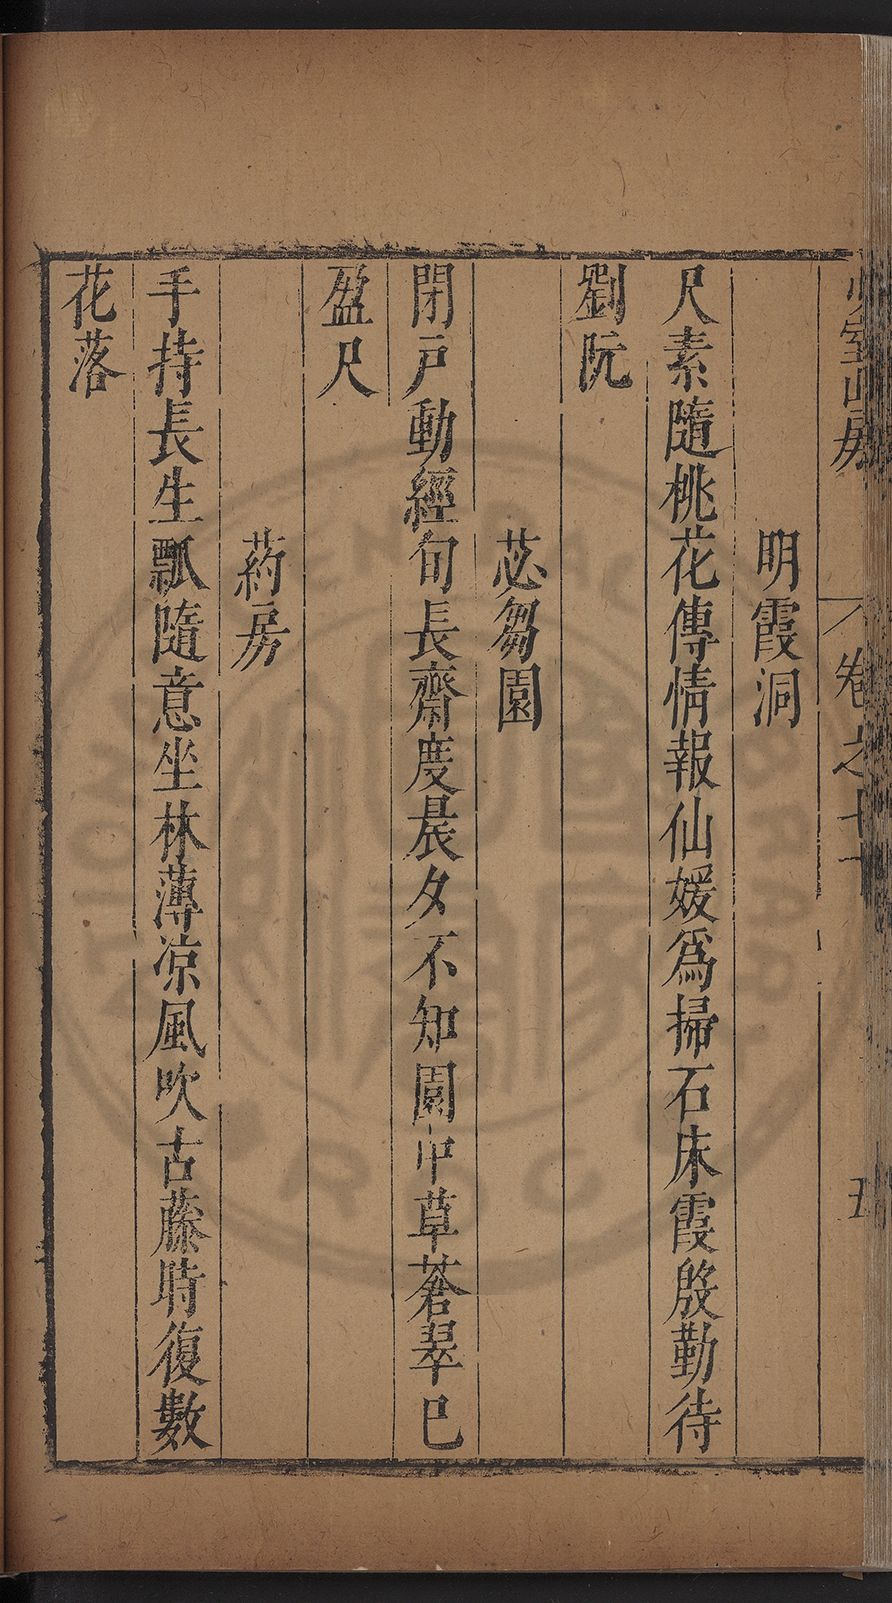 明霞洞
尺素隨桃花傳情報仙媛爲掃石床霞殷勤待
劉阮
苾芻園
閉戸動經旬長齋度晨夕不知園中草蒼翠巳
盈尺
葯房
手持長生瓢隨意坐林薄凉風吹古藤時復數
花落
卷之七
五